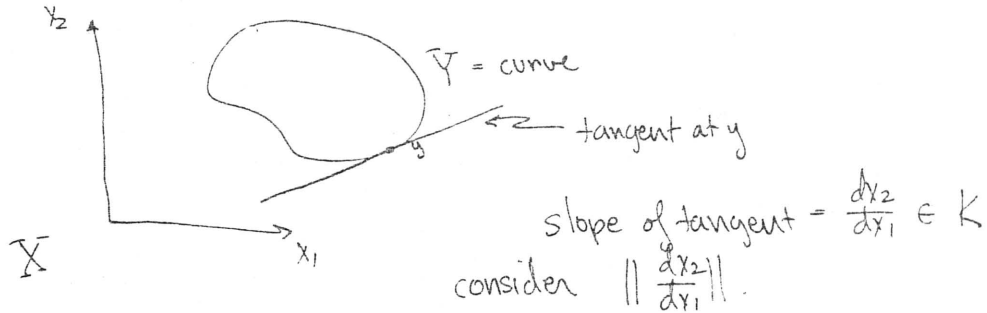 x₂
Y = curve
y
tangent at y
slope of tangent = dx₂/dx₁ ∈ K
X
x₁
consider ‖ dx₂/dx₁ ‖.